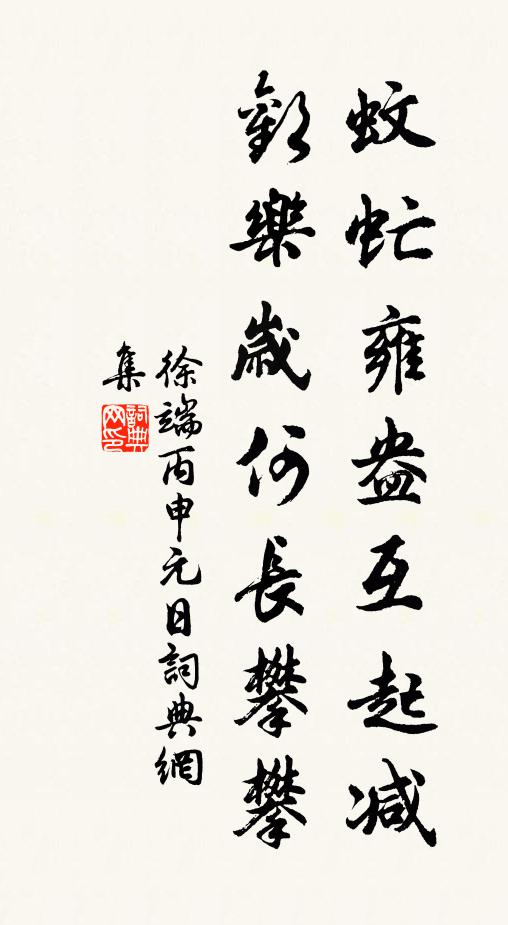 蚊虻雍盎互起減
歡樂歲何長攀攀
徐端丙申元日詞典網
集
詞典
网印